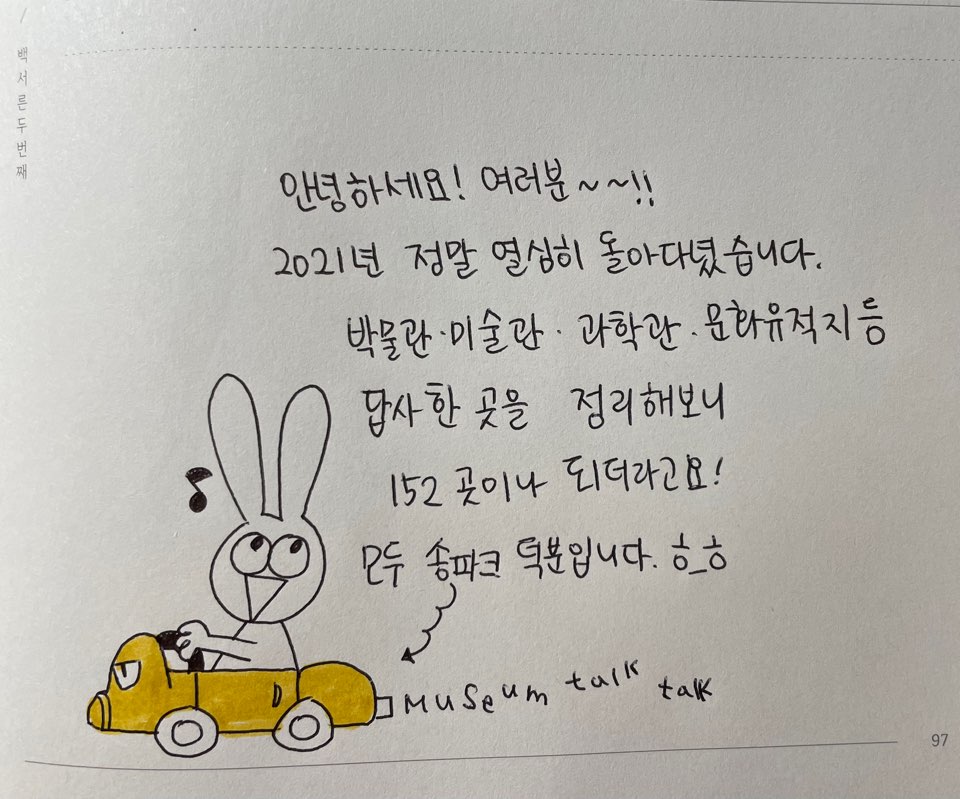 백서른두번째
안녕하세요! 여러분~~!!
2021년 정말 열심히 돌아다녔습니다.
박물관·미술관·과학관·문화유적지 등
답사한 곳을 정리해보니
152 곳이나 되더라고요!
모두 송파크 덕분입니다. ㅎ_ㅎ
Museum talk talk
97